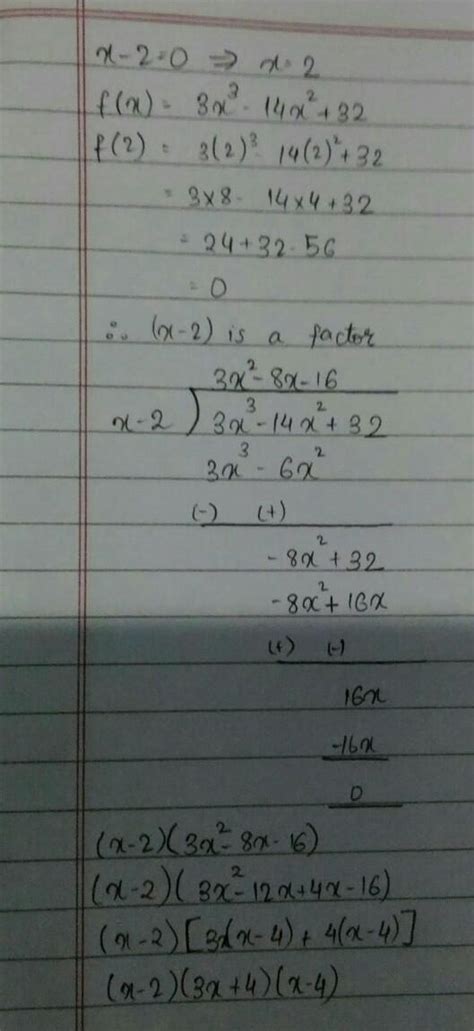 x-2=0 ⇒ x=2
f(x) = 3x³ - 14x² + 32
f(2) = 3(2)³ - 14(2)² + 32
= 3×8 - 14×4 + 32
= 24 + 32 - 56
= 0
∴ (x-2) is a factor
3x² - 8x - 16
x-2 ) 3x³ - 14x² + 32
3x³ - 6x²
(-) (+)
- 8x² + 32
- 8x² + 16x
(+) (-)
16x
-16x
0
(x-2)(3x² - 8x - 16)
(x-2)(3x² - 12x + 4x - 16)
(x-2)[3x(x-4) + 4(x-4)]
(x-2)(3x+4)(x-4)